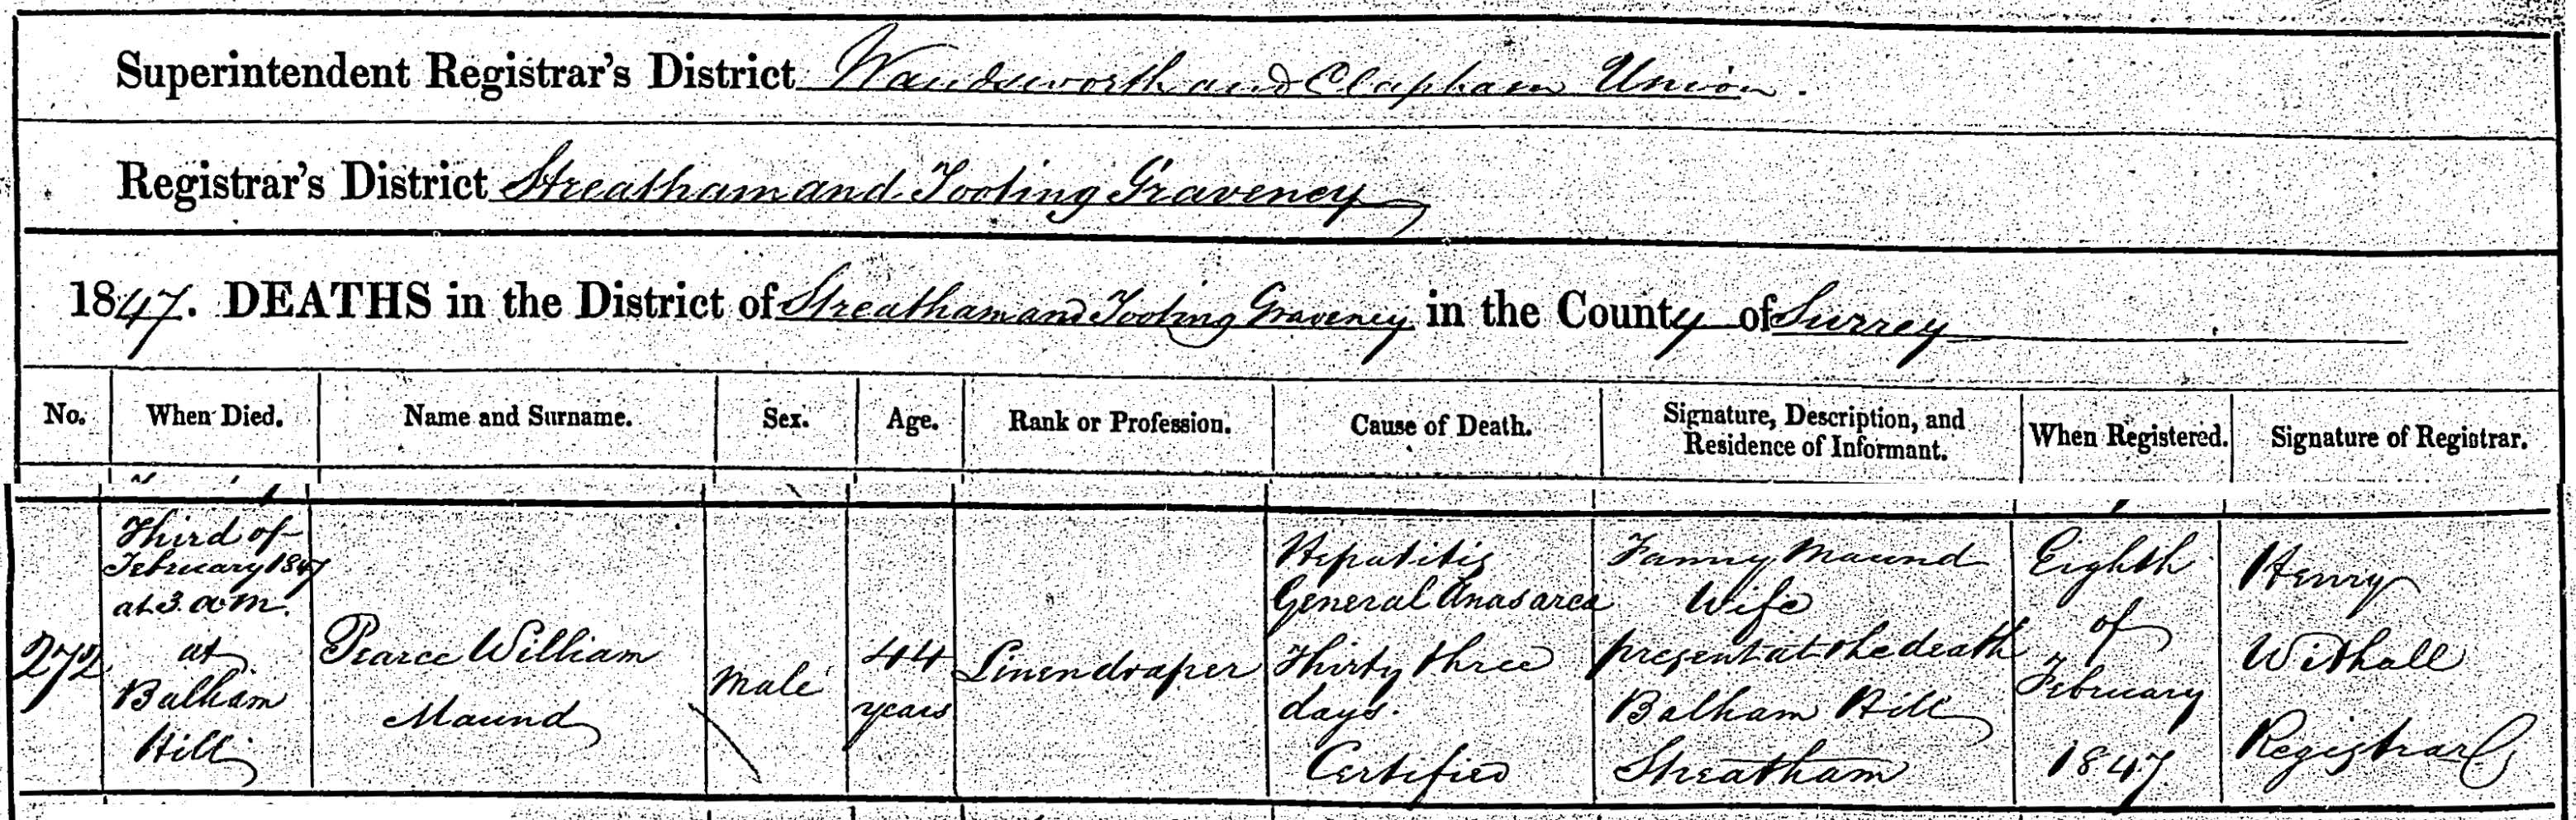 Superintendent Registrar's District Wandsworth and Clapham Union.
Registrar's District Streatham and Tooting Graveney
1847. DEATHS in the District of Streatham and Tooting Graveney in the County of Surrey
No. When Died. Name and Surname. Sex. Age. Rank or Profession. Cause of Death. Signature, Description, and Residence of Informant. When Registered. Signature of Registrar.
272
Third of
February 1847
at 3 a.m.
at
Balham
Hill
Pearce William
Maund
Male
44
years
Linendraper
Hepatitis
General Anasarca
Thirty three
days.
Certified
Fanny Maund
Wife
present at the death
Balham Hill
Streatham
Eighth
of
February
1847
Henry
Withall
Registrar